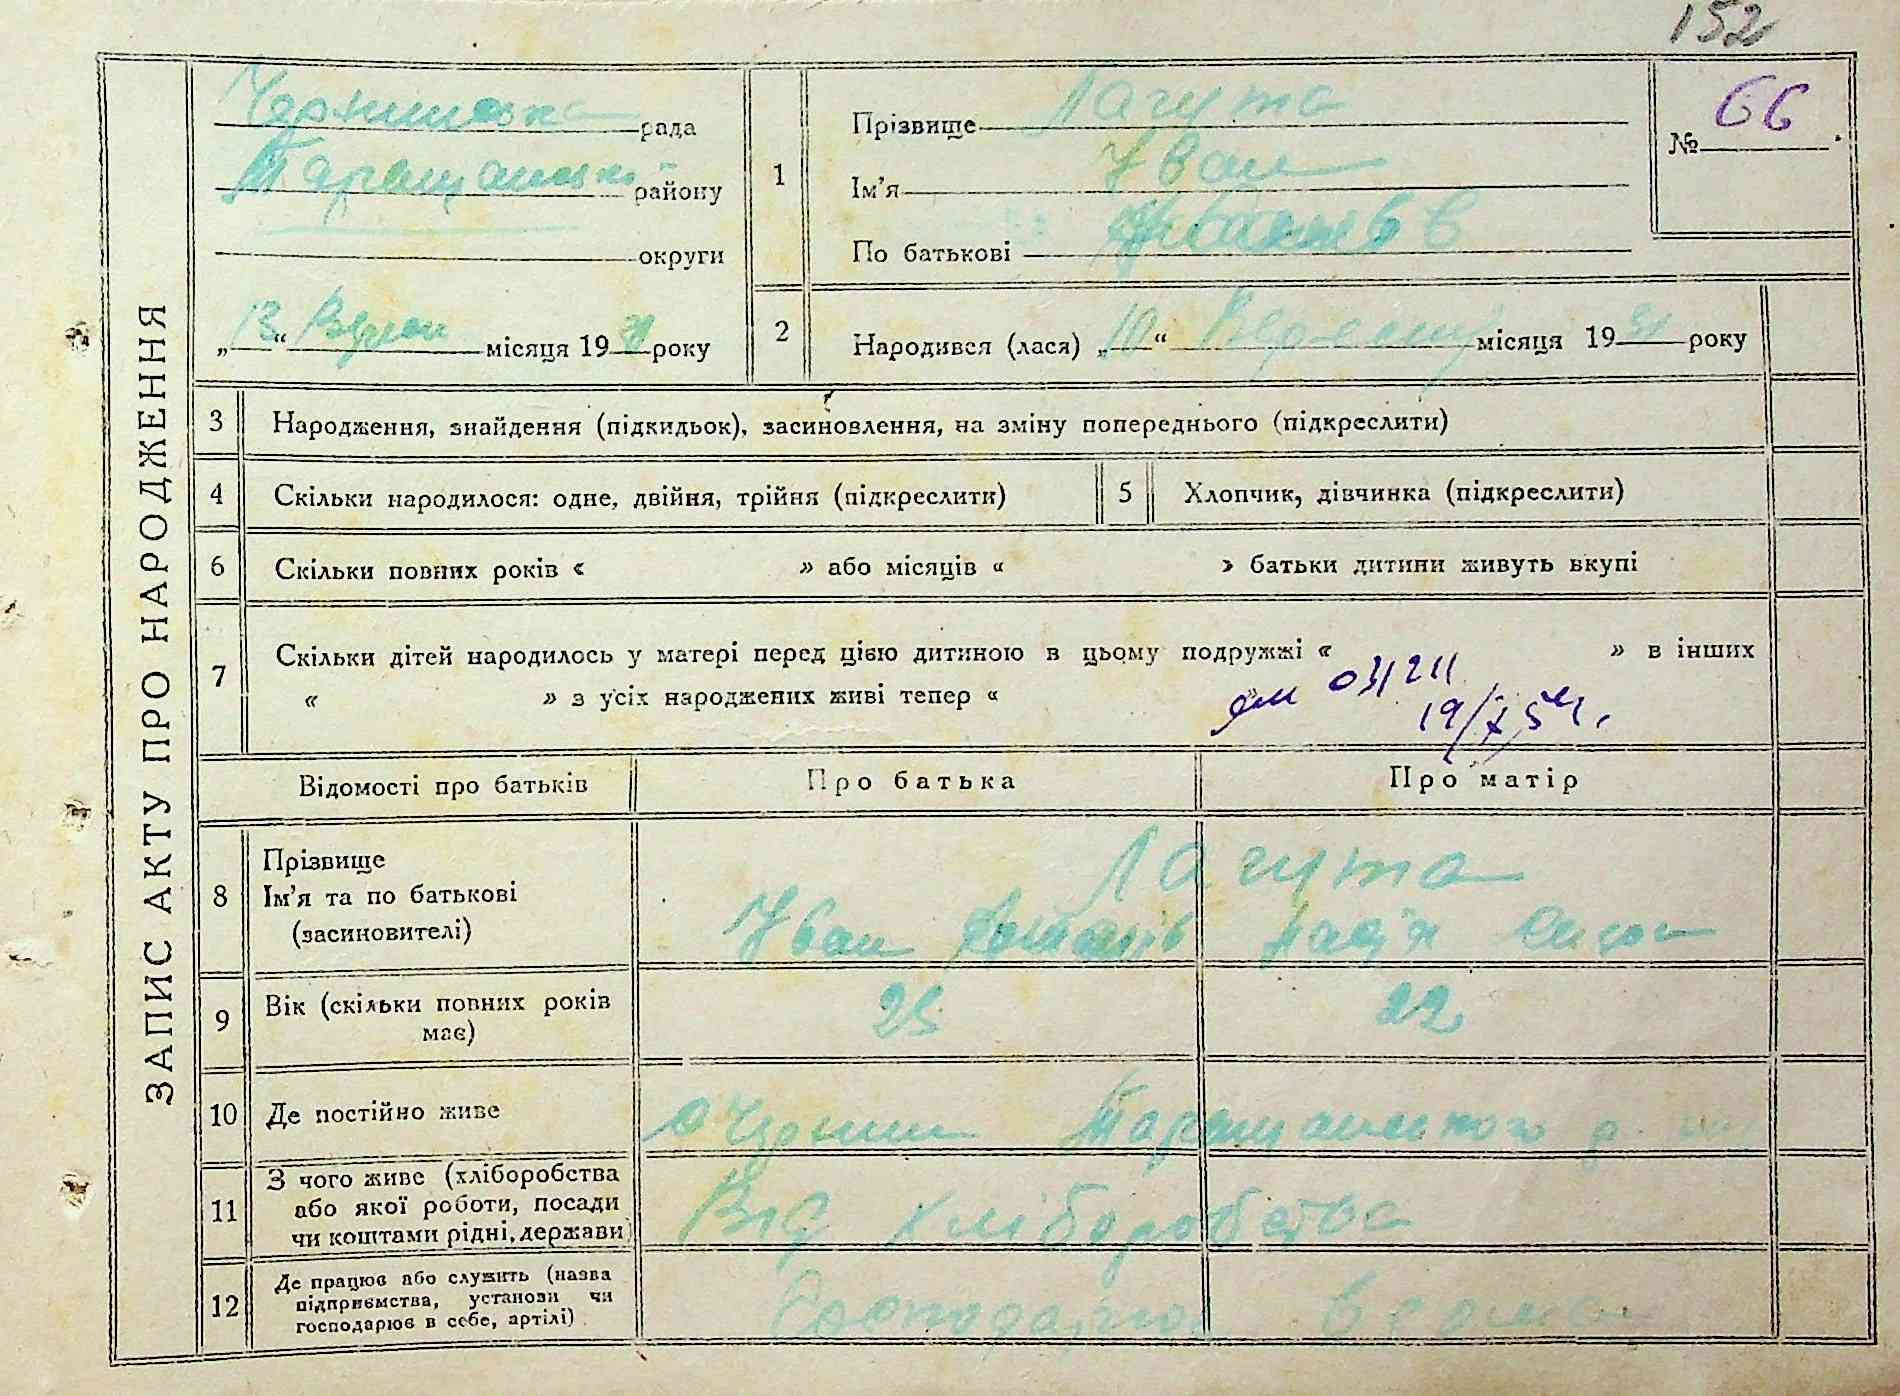 152
ЗАПИС АКТУ ПРО НАРОДЖЕННЯ
рада
району
округи
„13“ Верес місяця 19 31 року
1
Прізвище Лагута
Ім'я Іван
По батькові
№ 66
2
Народився (лася) „10“ Вересня місяця 19 31 року
3 Народження, знайдення (підкидьок), засиновлення, на зміну попереднього (підкреслити)
4 Скільки народилося: одне, двійня, трійня (підкреслити) 5 Хлопчик, дівчинка (підкреслити)
6 Скільки повних років « » або місяців « » батьки дитини живуть вкупі
7 Скільки дітей народилось у матері перед цією дитиною в цьому подружжі « » в інших
« » з усіх народжених живі тепер «
19/X 54 г.
Відомості про батьків Про батька Про матір
8 Прізвище
Ім'я та по батькові
(засиновителі)
Лагута
Іван
9 Вік (скільки повних років має)
25 22
10 Де постійно живе
Таращанського
11 З чого живе (хліборобства
або якої роботи, посади
чи коштами рідні, держави)
Від хліборобства
12 Де працює або служить (назва
підприємства, установи чи
господарює в себе, артілі)